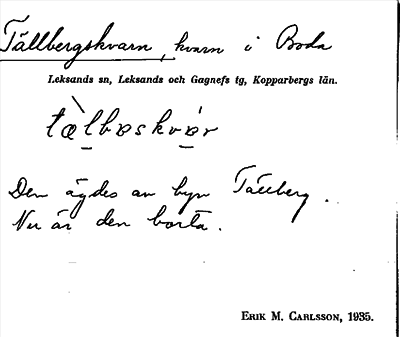 Tällbergskvarn, kvarn i Boda
Leksands sn, Leksands och Gagnefs tg, Kopparbergs län.
tæ̀lbɒskvɒ́r
Den ägdes av byn Tällberg.
Nu är den borta.
ERIK M. CARLSSON, 1935.